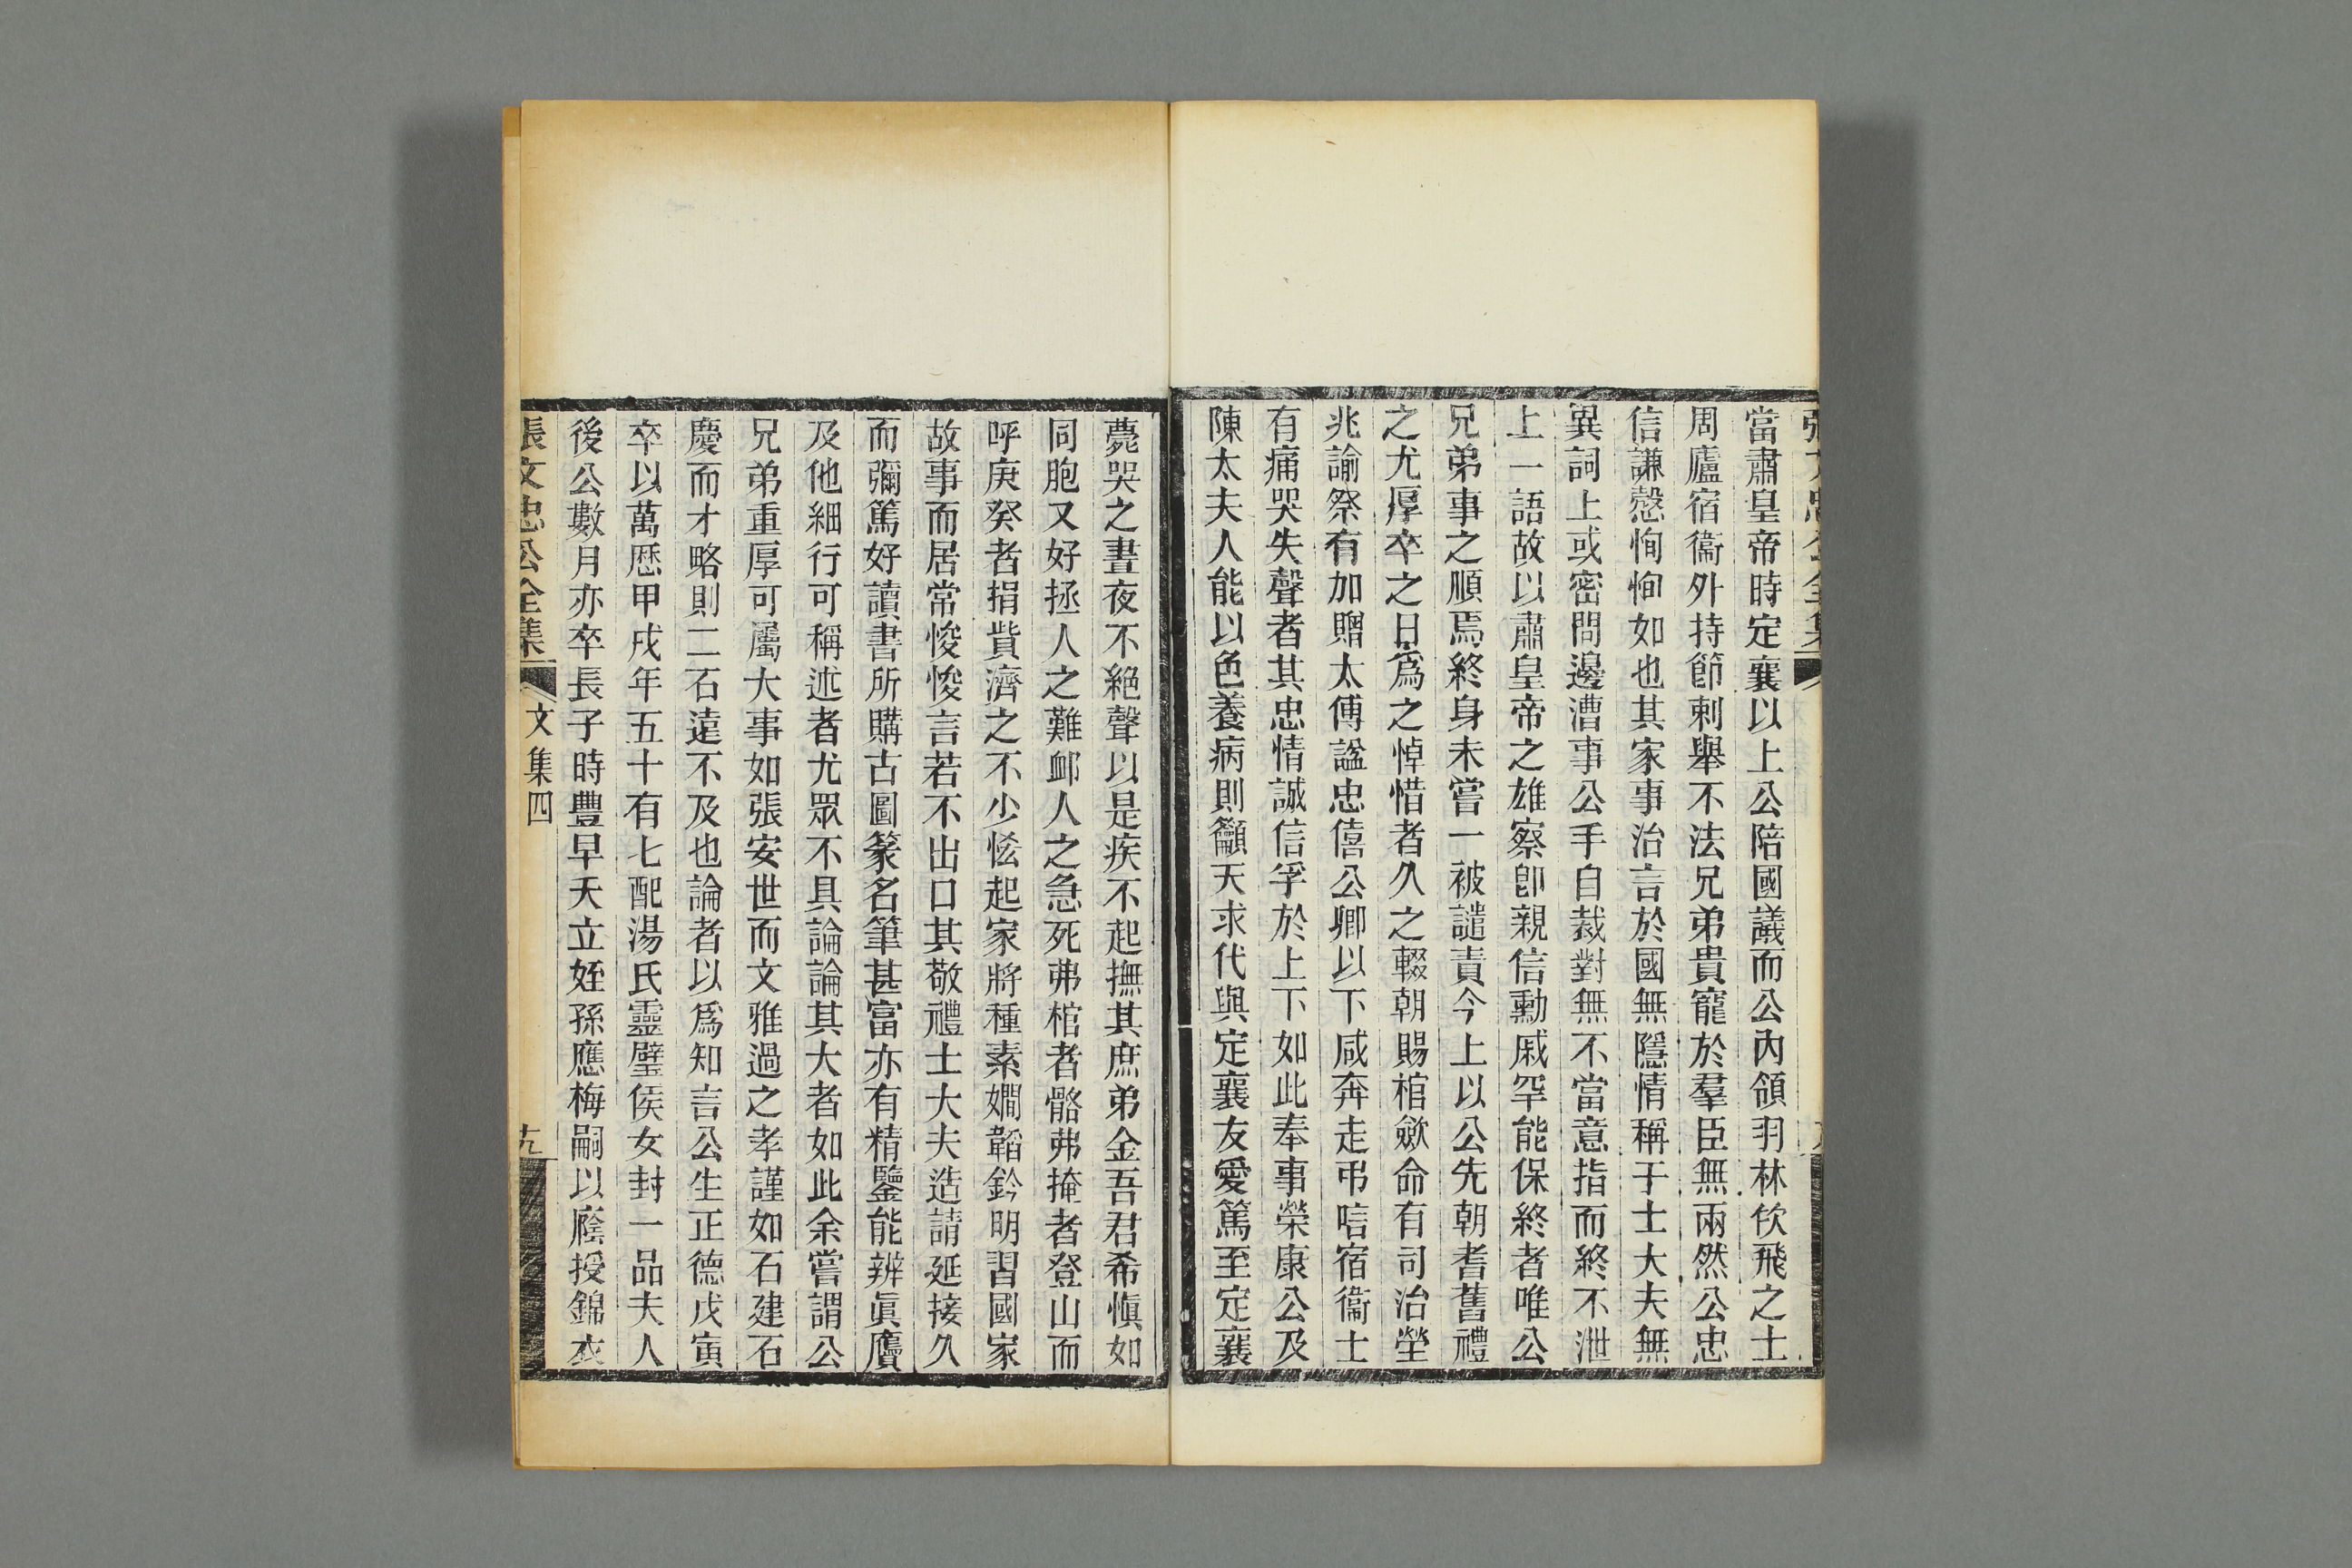 當肅皇帝時定襄以上公陪國議而公內領羽林佽飛之士
周廬宿衞外持節剌舉不法兄弟貴寵於羣臣無兩然公忠
信謙愨恂恂如也其家事治言於國無隱情稱于士大夫無
異詞上或密問邊漕事公手自裁對無不當意指而終不泄
上一語故以肅皇帝之雄察卽親信勳戚罕能保終者唯公
兄弟事之順焉終身未嘗一被譴責今上以公先朝耆舊禮
之尤厚卒之日爲之悼惜者久之輟朝賜棺歛命有司治塋
兆諭祭有加贈太傅謚忠僖公卿以下咸奔走弔唁宿衞士
有痛哭失聲者其忠情誠信孚於上下如此奉事榮康公及
陳太夫人能以色養病則籲天求代與定襄友愛篤至定襄
薨哭之晝夜不絕聲以是疾不起撫其庶弟金吾君希愼如
同胞又好拯人之難卹人之急死弗棺者骼弗掩者登山而
呼庚癸者捐貲濟之不少恡起家將種素嫺韜鈐明習國家
故事而居常悛悛言若不出口其敬禮士大夫造請延接久
而彌篤好讀書所購古圖篆名筆甚富亦有精鑒能辨眞贗
及他細行可稱述者尤眾不具論論其大者如此余嘗謂公
兄弟重厚可屬大事如張安世而文雅過之孝謹如石建石
慶而才略則二石遠不及也論者以爲知言公生正德戊寅
卒以萬歷甲戌年五十有七配湯氏靈璧侯女封一品夫人
後公數月亦卒長子時豐早夭立姪孫應梅嗣以廕授錦衣
張文忠公全集 文集四 十九